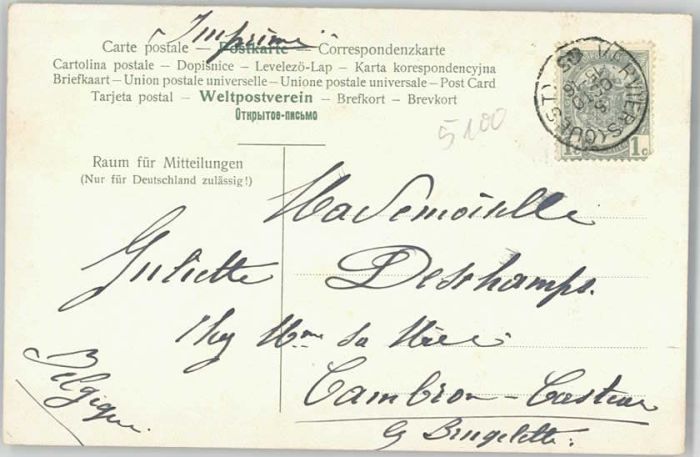 "Imprimé"
Carte postale – Postkarte – Correspondenzkarte
Cartolina postale – Dopisnice – Levelező-Lap – Karta korespondencyjna
Briefkaart – Union postale universelle – Unione postale universale – Post Card
Tarjeta postal – Weltpostverein – Brefkort – Brevkort
Открытое-письмо
5100
VERVIERS (OUEST)
1c
Raum für Mitteilungen
(Nur für Deutschland zulässig!)
Mademoiselle
Juliette Deschamps.
Chez Mme sa Mère
Cambron – Casteau
Brugelette.
Belgique.